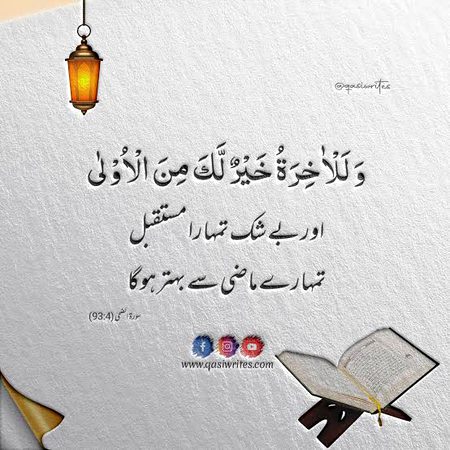 @qasiwrites
وَ لَلْاٰخِرَةُ خَيْرٌ لَّكَ مِنَ الْاُوْلٰى
اور بے شک تمہارا مستقبل
تمہارے ماضی سے بہتر ہوگا
سورۃ الضحی (93:4)
www.qasiwrites.com